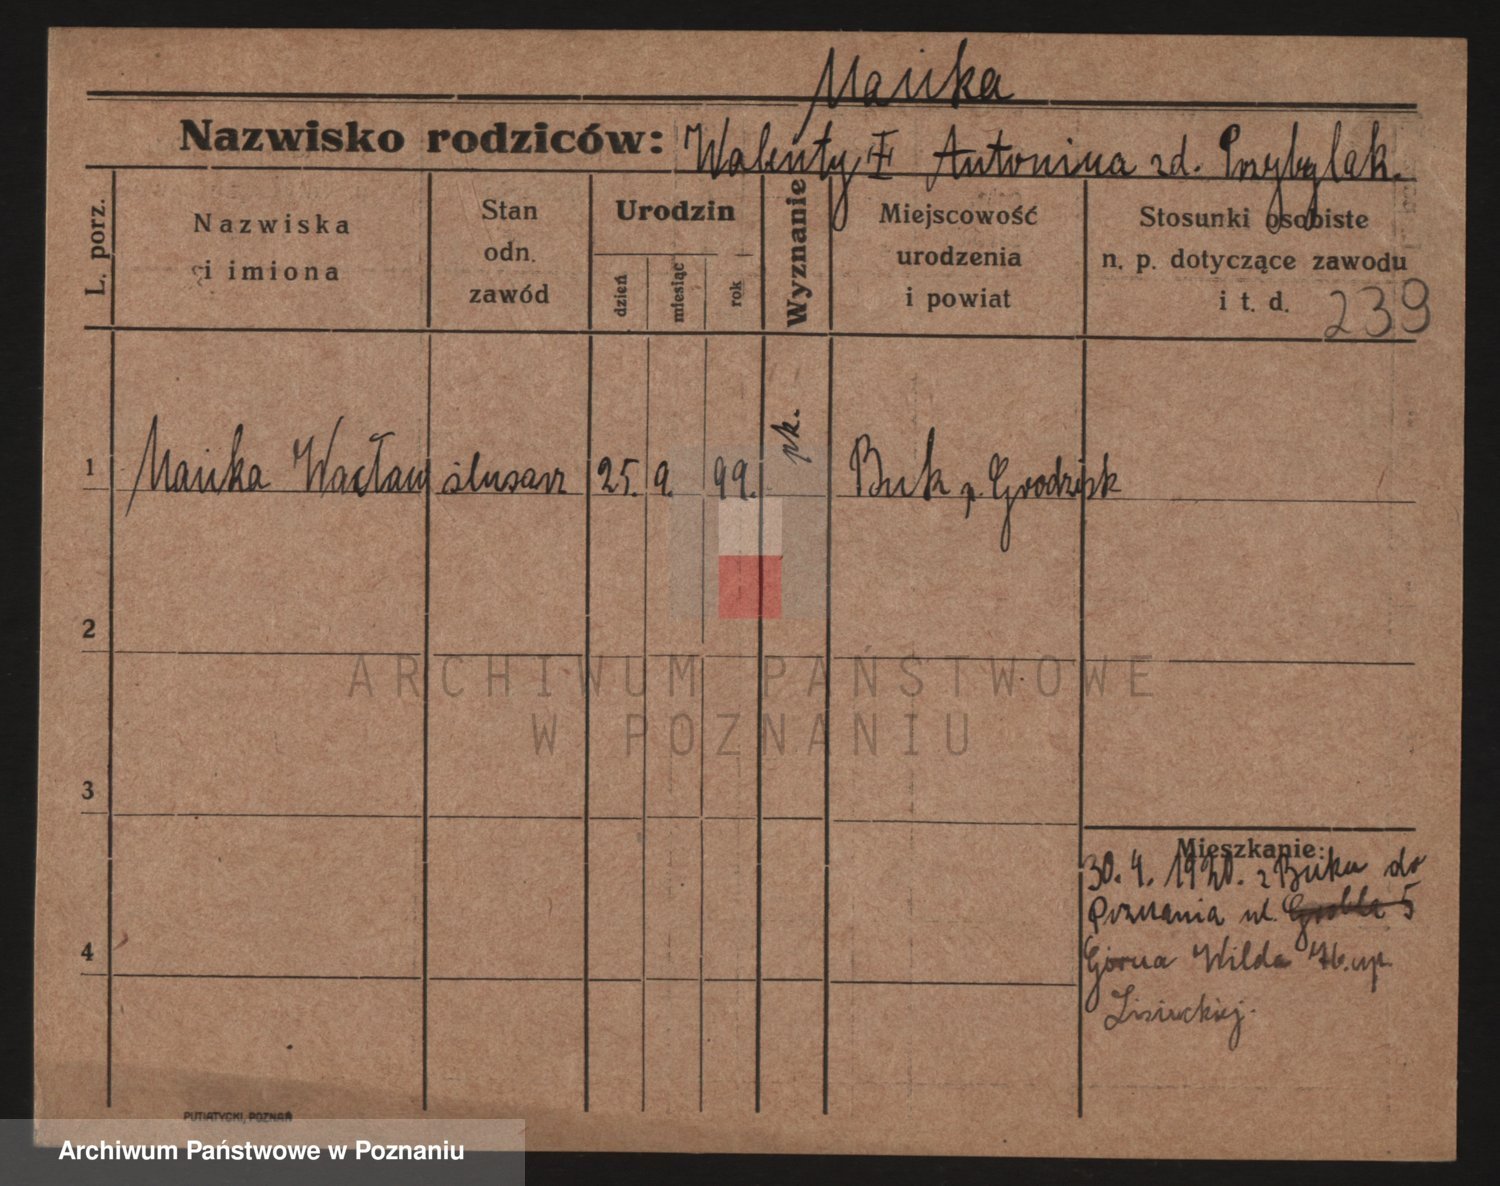 Mańka
Nazwisko rodziców: Walenty i Antonina zd. Przybylak.
L. porz.
Nazwiska
i imiona
Stan
odn.
zawód
Urodzin
dzień
miesiąc
rok
Wyznanie
Miejscowość
urodzenia
i powiat
Stosunki osobiste
n. p. dotyczące zawodu
i t. d.
239
1 Mańka Wacław ślusarz 25. 9. 99. rk. Buk p. Grodzisk
2
3
4
Mieszkanie:
30. 4. 1920. z Buku do
Poznania ul. Grobla 5
Górna Wilda 76.
Lisieckiej.
PUTIATYCKI, POZNAŃ
ARCHIWUM PAŃSTWOWE
W POZNANIU
Archiwum Państwowe w Poznaniu